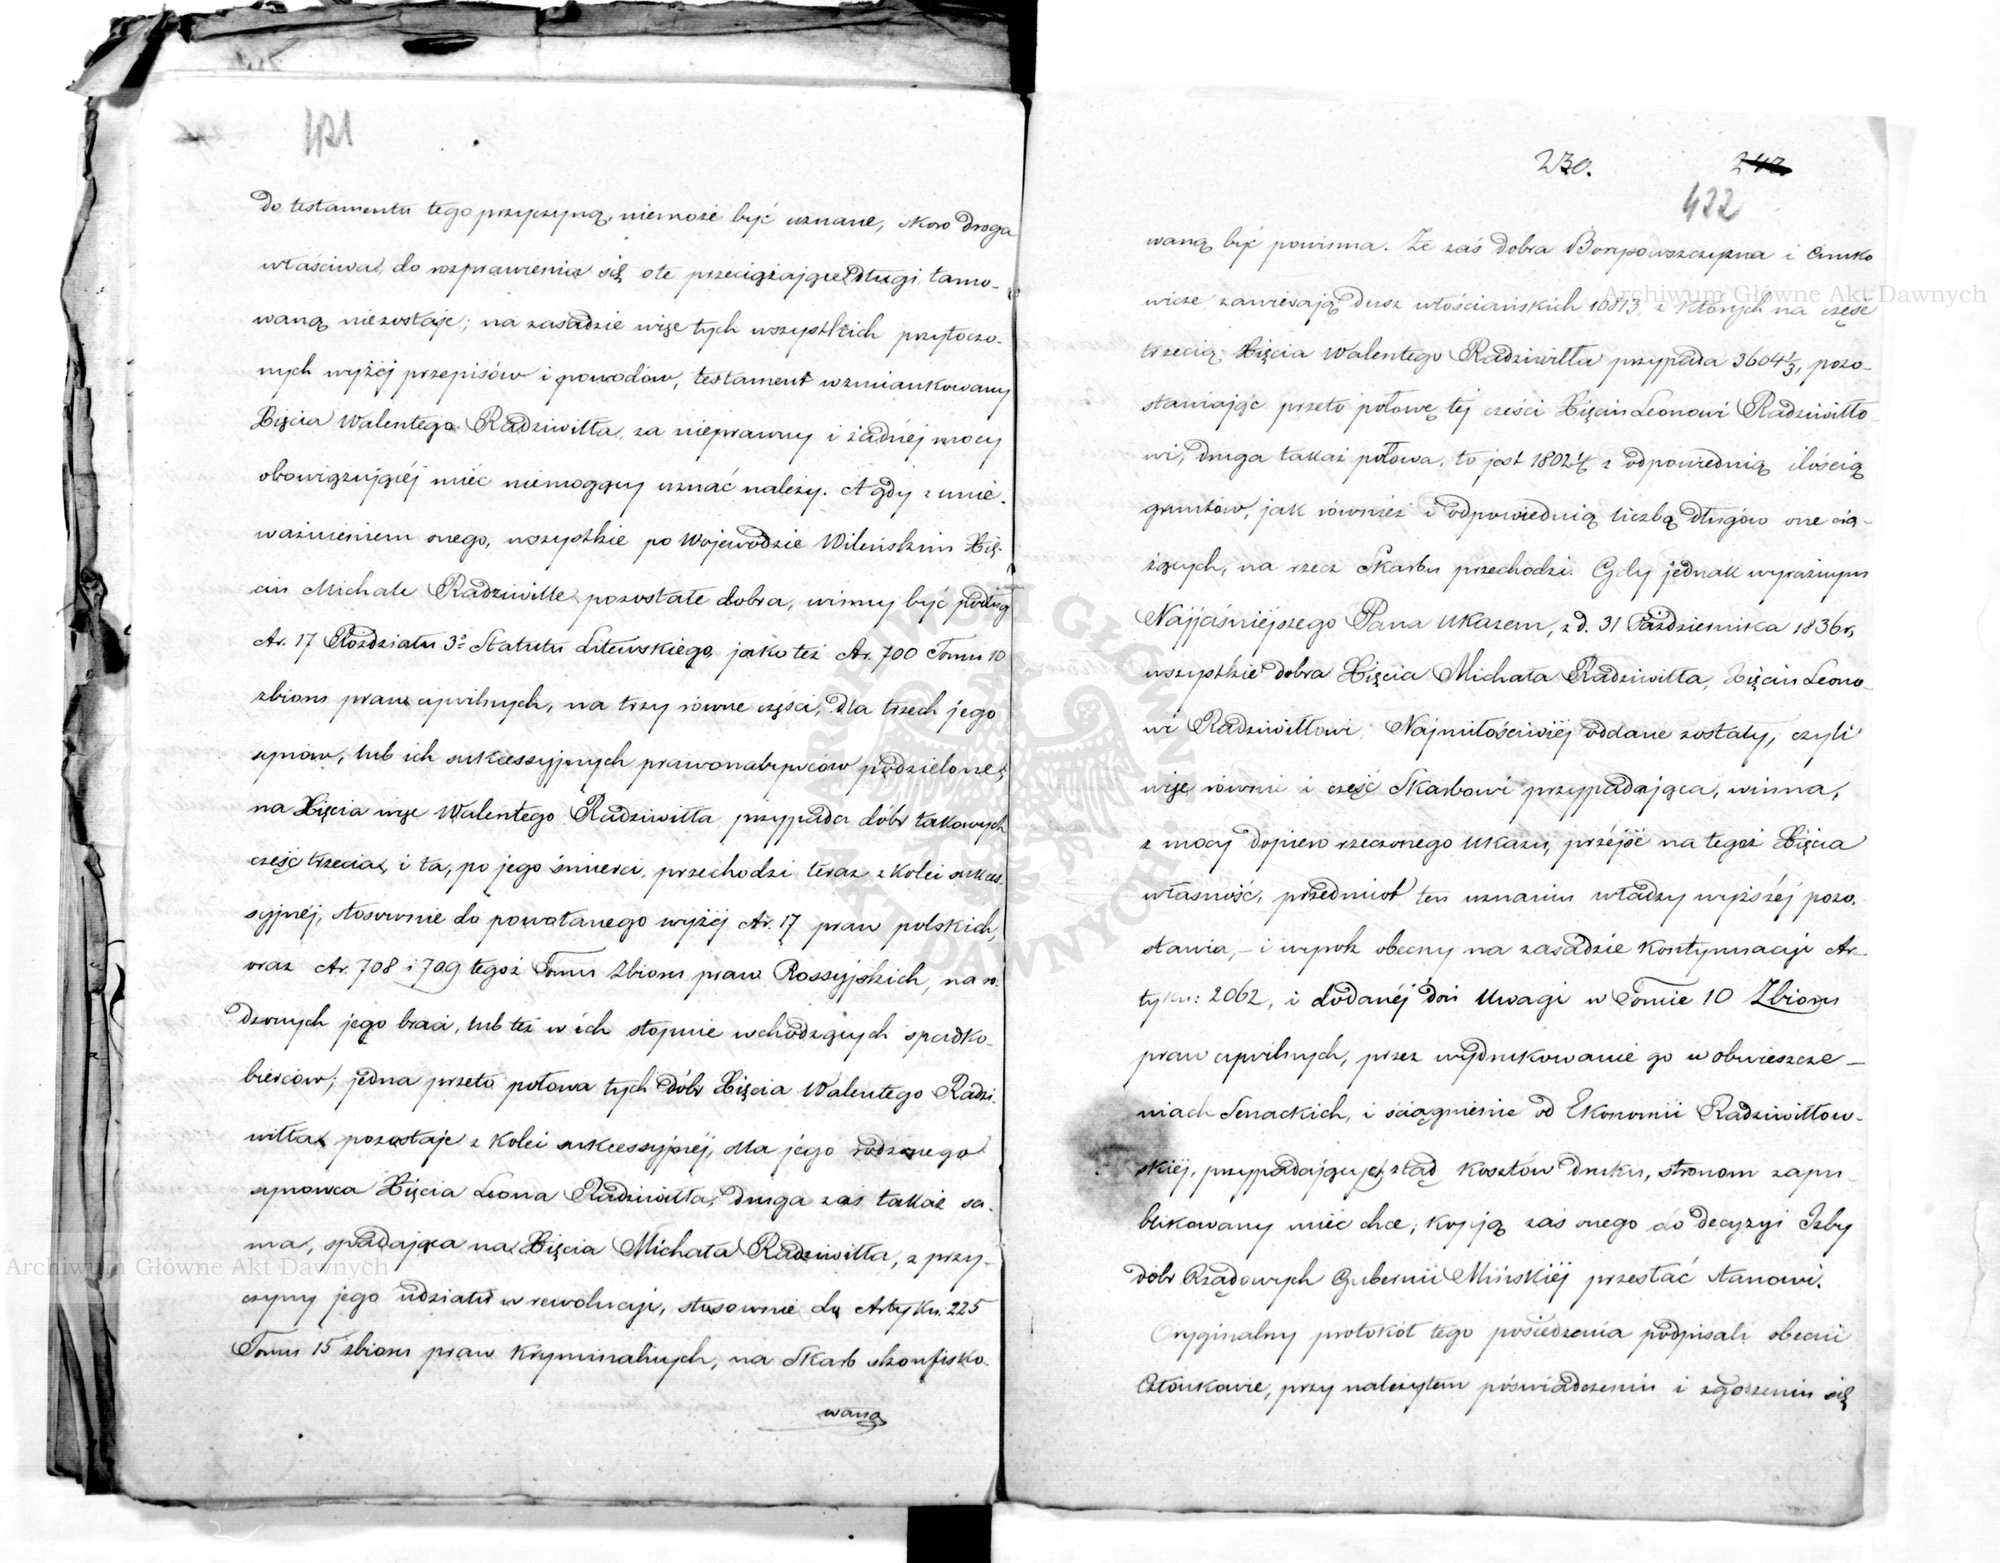 421
do testamentu tego przyczyną, niemoże być uznane, skoro droga
właściwa, do rozprawienia się ote przeciążające długi tamo-
waną niezostaje; na zasadzie więc tych wszystkich przytoczo-
nych wyżéj przepisów i powodów, testament wzmiankowany
Xięcia Walentego Radziwiłła, za nieprawny i żadnéj mocy
obowiązującéj mieć niemogący uznać należy. A gdy z unie-
ważnieniem onego, wszystkie po Wojewodzie Wileńskim Xię-
ciu Michale Radziwille pozostałe dobra, winny być podług
Ar. 17 Rozdziału 3º Statutu Litewskiego, jako też Ar. 700 Tomu 10
zbioru praw cywilnych, na trzy równe części, dla trzech jego
synów, lub ich sukcessyjnych prawonabywców podzielone;
na Xięcia więc Walentego Radziwiłła przypada dóbr takowych
część trzecia, i ta, po jego śmierci, przechodzi teraz z kolei sukces-
syjnéj, stosownie do powołanego wyżéj Ar. 17 praw polskich,
oraz Ar. 708 i 709 tegoż Tomu Zbioru praw Rossyjskich, na ro-
dzonych jego braci, lub też w ich stopnie wchodzących spadko-
bierców; jedna przeto połowa tych dóbr Xięcia Walentego Radzi-
wiłła pozostaje z kolei sukcessyjnéj, dla jego rodzonego
synowca Xięcia Leona Radziwiłła, druga zaś takaż sa-
ma, spadająca na Xięcia Michała Radziwiłła, z przy-
czyny jego udziału w rewolucji, stosownie do Artyku. 225
Tomu 15 zbioru praw Kryminalnych, na Skarb skonfisko-
waną
230. 242
422
waną być powinna. Że zaś dobra Borysowszczyzna i
wicze zawierają dusz włościańskich 10813, z których na część
trzecią Xięcia Walentego Radziwiłła przypada 3604 1/3, pozo-
stawiając przeto połowę tej części Xięciu Leonowi Radziwiłło-
wi, druga takaż połowa, to jest 1802 1/6 z odpowiednią ilością
gruntów, jak również i odpowiednią liczbą długów one cią-
żących, na rzecz Skarbu przechodzi. Gdy jednak wyraźnym
Najjaśniejszego Pana Ukazem, z d. 31 Października 1836 r,
wszystkie dobra Xięcia Michała Radziwiłła, Xięciu Leono-
wi Radziwiłłowi, Najmiłościwiéj oddane zostały, czyli
więc równie i część Skarbowi przypadająca, winna,
z mocy dopiero rzeczonego Ukazu, przéjść na tegoż Xięcia
własność, przedmiot ten uznaniu władzy wyższéj pozo-
stawia, – i wyrok obecny na zasadzie kontynuacji Ar-
tyku: 2062, i dodanéj doń Uwagi w Tomie 10 Zbioru
praw cywilnych, przez wydrukowanie go w obwieszcze-
niach Senackich, i ściągnienie od Ekonomii Radziwiłłow-
skiéj, przypadających ztąd kosztów druku, stronom zapu-
blikowany mieć chce; kopją zaś onego do decyzyi Izby
dóbr Rządowych Gubernii Mińskiéj przesłać stanowi.
Oryginalny protokół tego posiedzenia podpisali obecni
Członkowie, przy należytem poświadczeniu i zgodzeniu się
Archiwum Główne Akt Dawnych
Archiwum Główne Akt Dawnych
ARCHIWUM GŁÓWNE AKT DAWNYCH